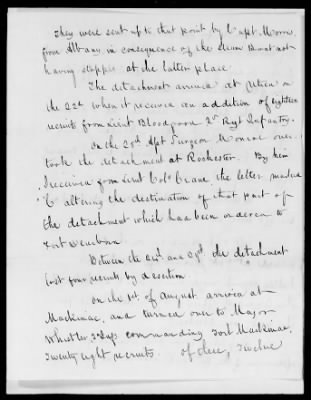 They were sent up to that point by Capt. Morris
from Albany in consequence of the steam Boat not
having stopped at the latter place.
The detachment arrived at Utica on
the 22d when it received an addition of eighteen
recruits from Lieut Bloodgood 2d Regt Infantry.
On the 25th Asst Surgeon Monroe over
took the detachment at Rochester. By him
I received from Lieut Colo Crane the letter marked
"C" altering the destination of that part of
the detachment which had been ordered to
Fort Dearborn
Between the and 29th the detachment
lost four recruits by desertion
On the 1st of August arrived at
Mackinac, and turned over to Major
Whistler 2d Inf commanding Fort Mackinac,
twenty eight recruits. Of these, Twelve